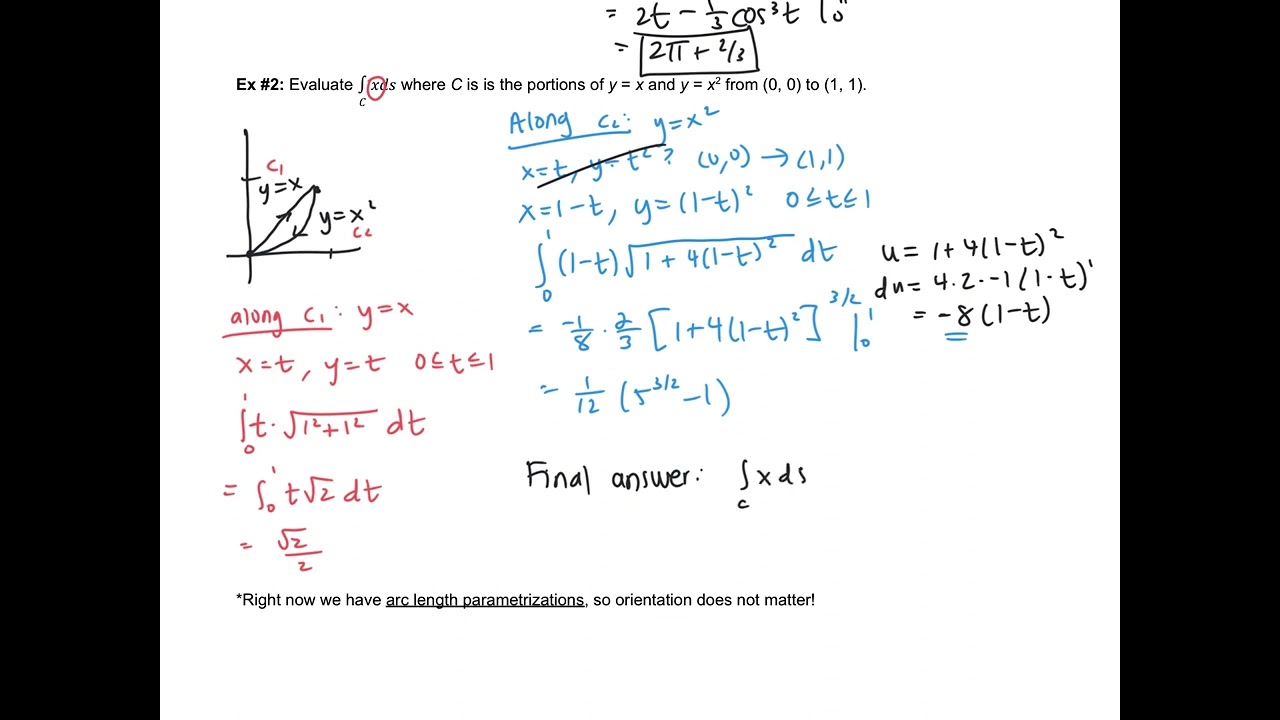 = 2t - 1/3 cos³t |₀
= 2π + 2/3
Ex #2: Evaluate ∫_C xds where C is is the portions of y = x and y = x² from (0, 0) to (1, 1).
C₁
y=x
y=x²
C₂
along C₁: y=x
x=t, y=t 0≤t≤1
∫₀¹ t·√(1²+1²) dt
= ∫₀¹ t√2 dt
= √2/2
Along C₂: y=x²
x=t, y=t² ? (0,0) → (1,1)
x=1-t, y=(1-t)² 0≤t≤1
∫₀¹ (1-t)√(1+4(1-t)²) dt
= -1/8 · 2/3 [1+4(1-t)²]^(3/2) |₀¹
= 1/12 (5^(3/2) - 1)
u = 1+4(1-t)²
du = 4·2·-1(1-t)¹
= -8(1-t)
Final answer: ∫_C x ds
*Right now we have arc length parametrizations, so orientation does not matter!